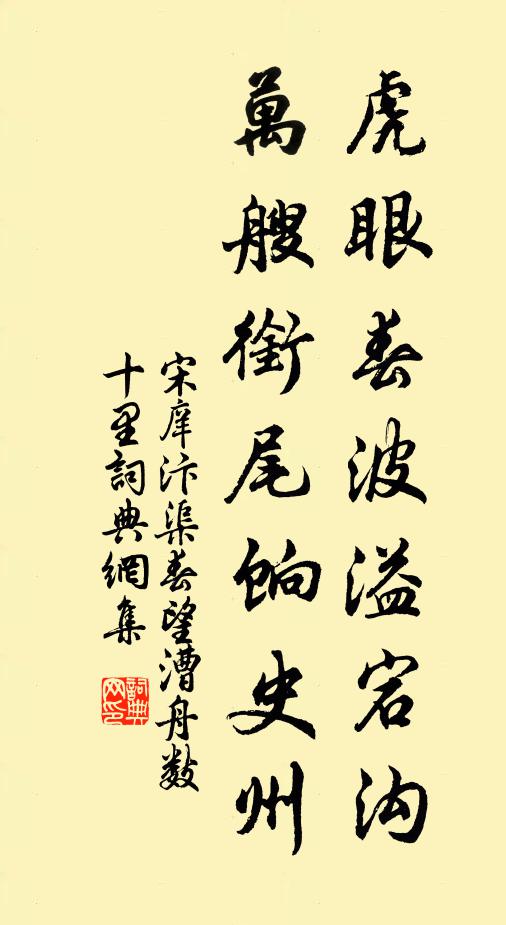 虎眼春波溢宕沟
萬艘銜尾餉史州
宋庠汴渠春望漕舟數
十里詞典網集
詞典
网印